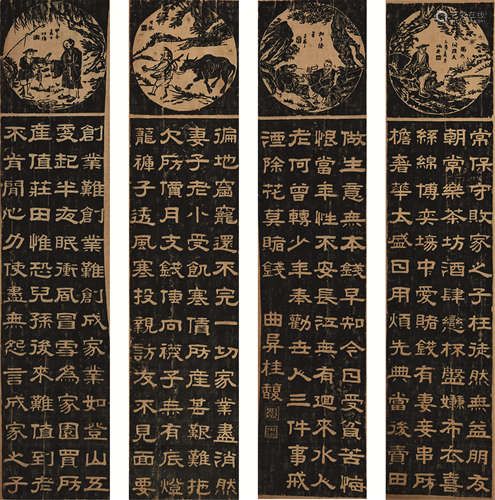 創業難創業難創成家業如登山五
更起半夜眠衝風冒雪為家園買房
產值莊田惟恐兒孫後來難值到老
不肯閒心力使盡無怨言成家之子
常保守敗家之子枉徒然無益朋友
朝常樂茶坊酒肆戀杯盤嫌布衣喜
絲綿博奕場中愛賭錢有妻妾串房
檐奢華太盛日用煩先典當後賣田
徧地窟窿還不完一切家業盡消然
妻子老小受飢寒債房產甚艱難拖
欠房價月支錢使向襪子無有底燈
籠褲子透風寒投親訪友不見面要
做生意無本錢早知今日受貧苦悔
恨當年性不安長江無有迴來水人
老何曾轉少年奉勸世人三件事戒
酒除花莫賭錢 曲阜桂馥